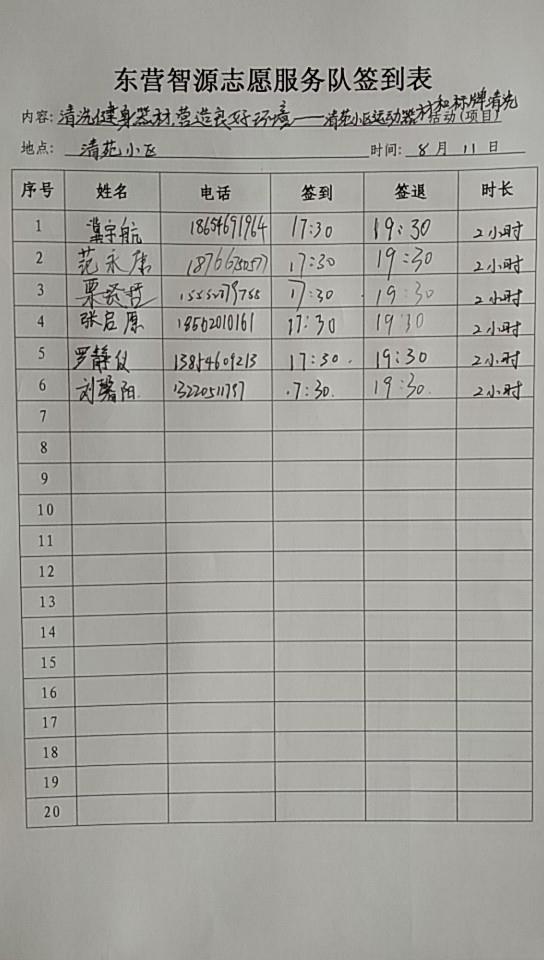 东营智源志愿服务队签到表
内容: 清洗健身器材,营造良好环境——清苑小区运动器材和标牌清洗 活动(项目)
地点: 清苑小区 时间: 8 月 11 日
序号 姓名 电话 签到 签退 时长
1 冀宇航 18654691964 17:30 19:30 2小时
2 范永康 17:30 19:30 2小时
3 17:30 19:30 2小时
4 张启原 18562010161 17:30 19:30 2小时
5 罗静仪 13854609213 17:30 19:30 2小时
6 刘馨阳 13220511797 7:30 19:30 2小时
7
8
9
10
11
12
13
14
15
16
17
18
19
20